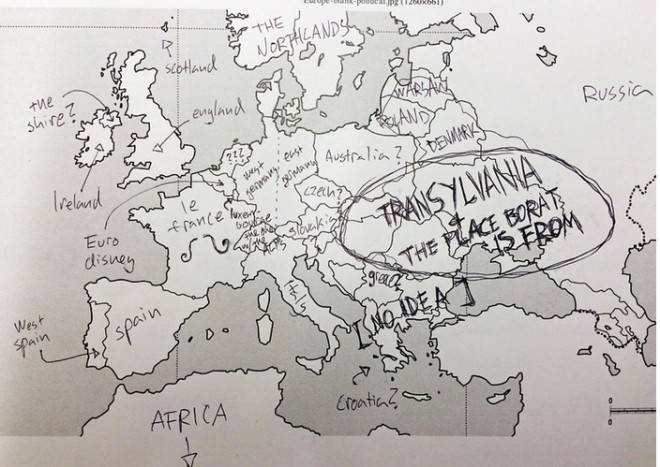 Europe-blank-political.jpg (1260x661)
THE
NORTHLANDS
scotland
the
shire?
england
Russia
WARSAW
POLAND
DENMARK
???
west
germany
east
germany
Australia?
Ireland
czech?
TRANSYLVANIA
+
THE PLACE BORAT
IS FROM
le
france
slovakia
ALPS
Euro
disney
greece
[NO IDEA]
West
spain
spain
Croatia?
AFRICA